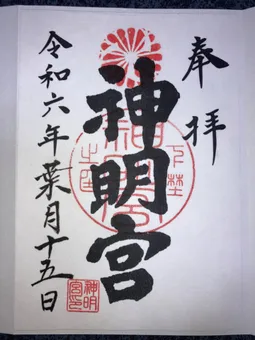 奉拝
神明宮
令和六年葉月十五日
神明
宮印